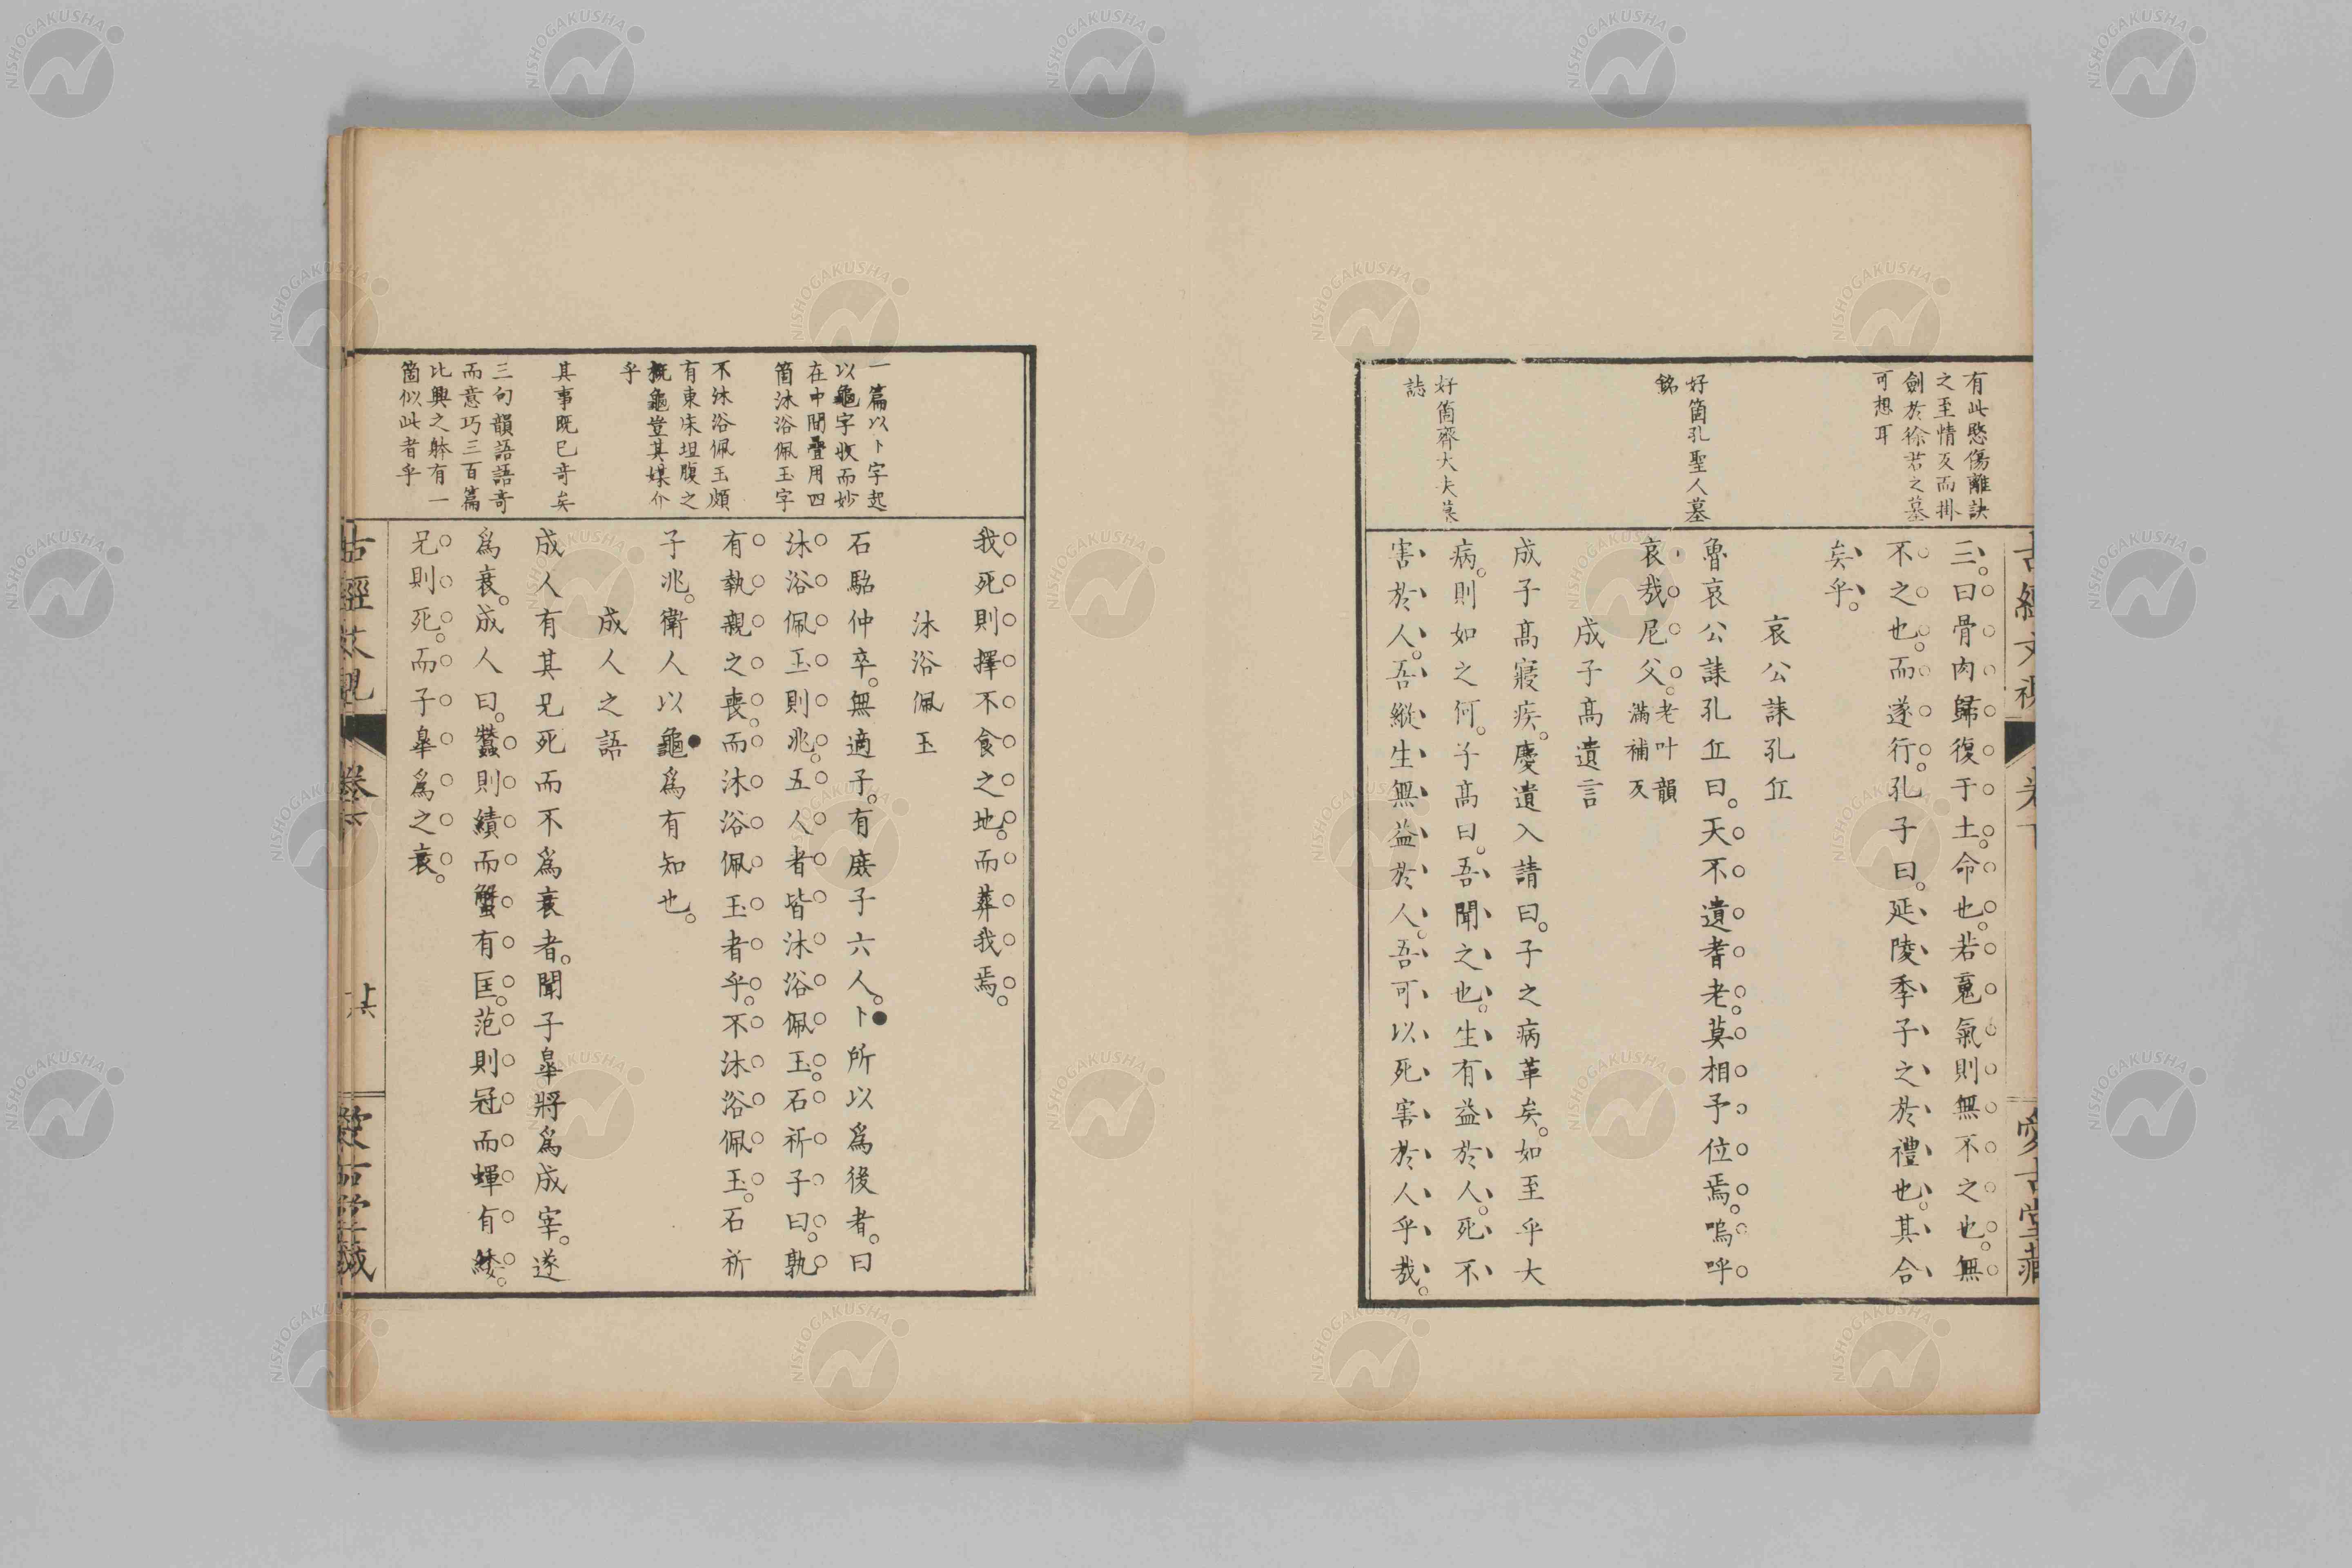 有此愍傷離訣
之至情反而掛
劍於徐君之墓
可想耳
好箇孔聖人墓
銘
好箇齊大夫墓
誌
三。曰骨肉歸復于土。命也。若䰟氣則無不之也。無
不之也。而遂行。孔子曰。延陵季子之於禮也。其合
矣乎。
哀公誄孔丘
魯哀公誄孔丘曰。天不遺耆老。莫相予位焉。嗚呼
哀哉尼父。老叶韻
滿補反
成子髙遺言
成子髙寢疾。慶遺入請曰。子之病革矣。如至乎大
病。則如之何。子髙曰。吾聞之也。生有益於人。死不
害於人。吾縱生無益於人。吾可以死害於人乎哉。
一篇以卜字起
以龜字收而妙
在中間疊用四
箇沐浴佩玉字
不沐浴佩玉頗
有東床坦腹之
概龜豈其媒介
乎
其事既已奇矣
三句韻語語奇
而意巧三百篇
比興之躰有一
箇似此者乎
我死則擇不食之地。而葬我焉。
沐浴佩玉
石駘仲卒。無適子。有庶子六人。卜所以爲後者。曰
沐浴佩玉則兆。五人者皆沐浴佩玉。石祈子曰。孰
有執親之喪。而沐浴佩玉者乎。不沐浴佩玉。石祈
子兆。衛人以龜爲有知也。
成人之語
成人有其兄死而不爲衰者。聞子皐將爲成宰。遂
爲衰。成人曰。蠶則績而蟹有匡。范則冠而蟬有緌。
兄則死。而子皐爲之衰。